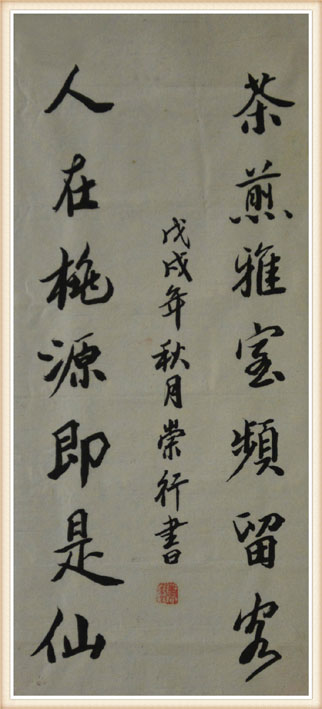 茶煎雅室頻留客
人在桃源即是仙
戊戌年秋月崇行書